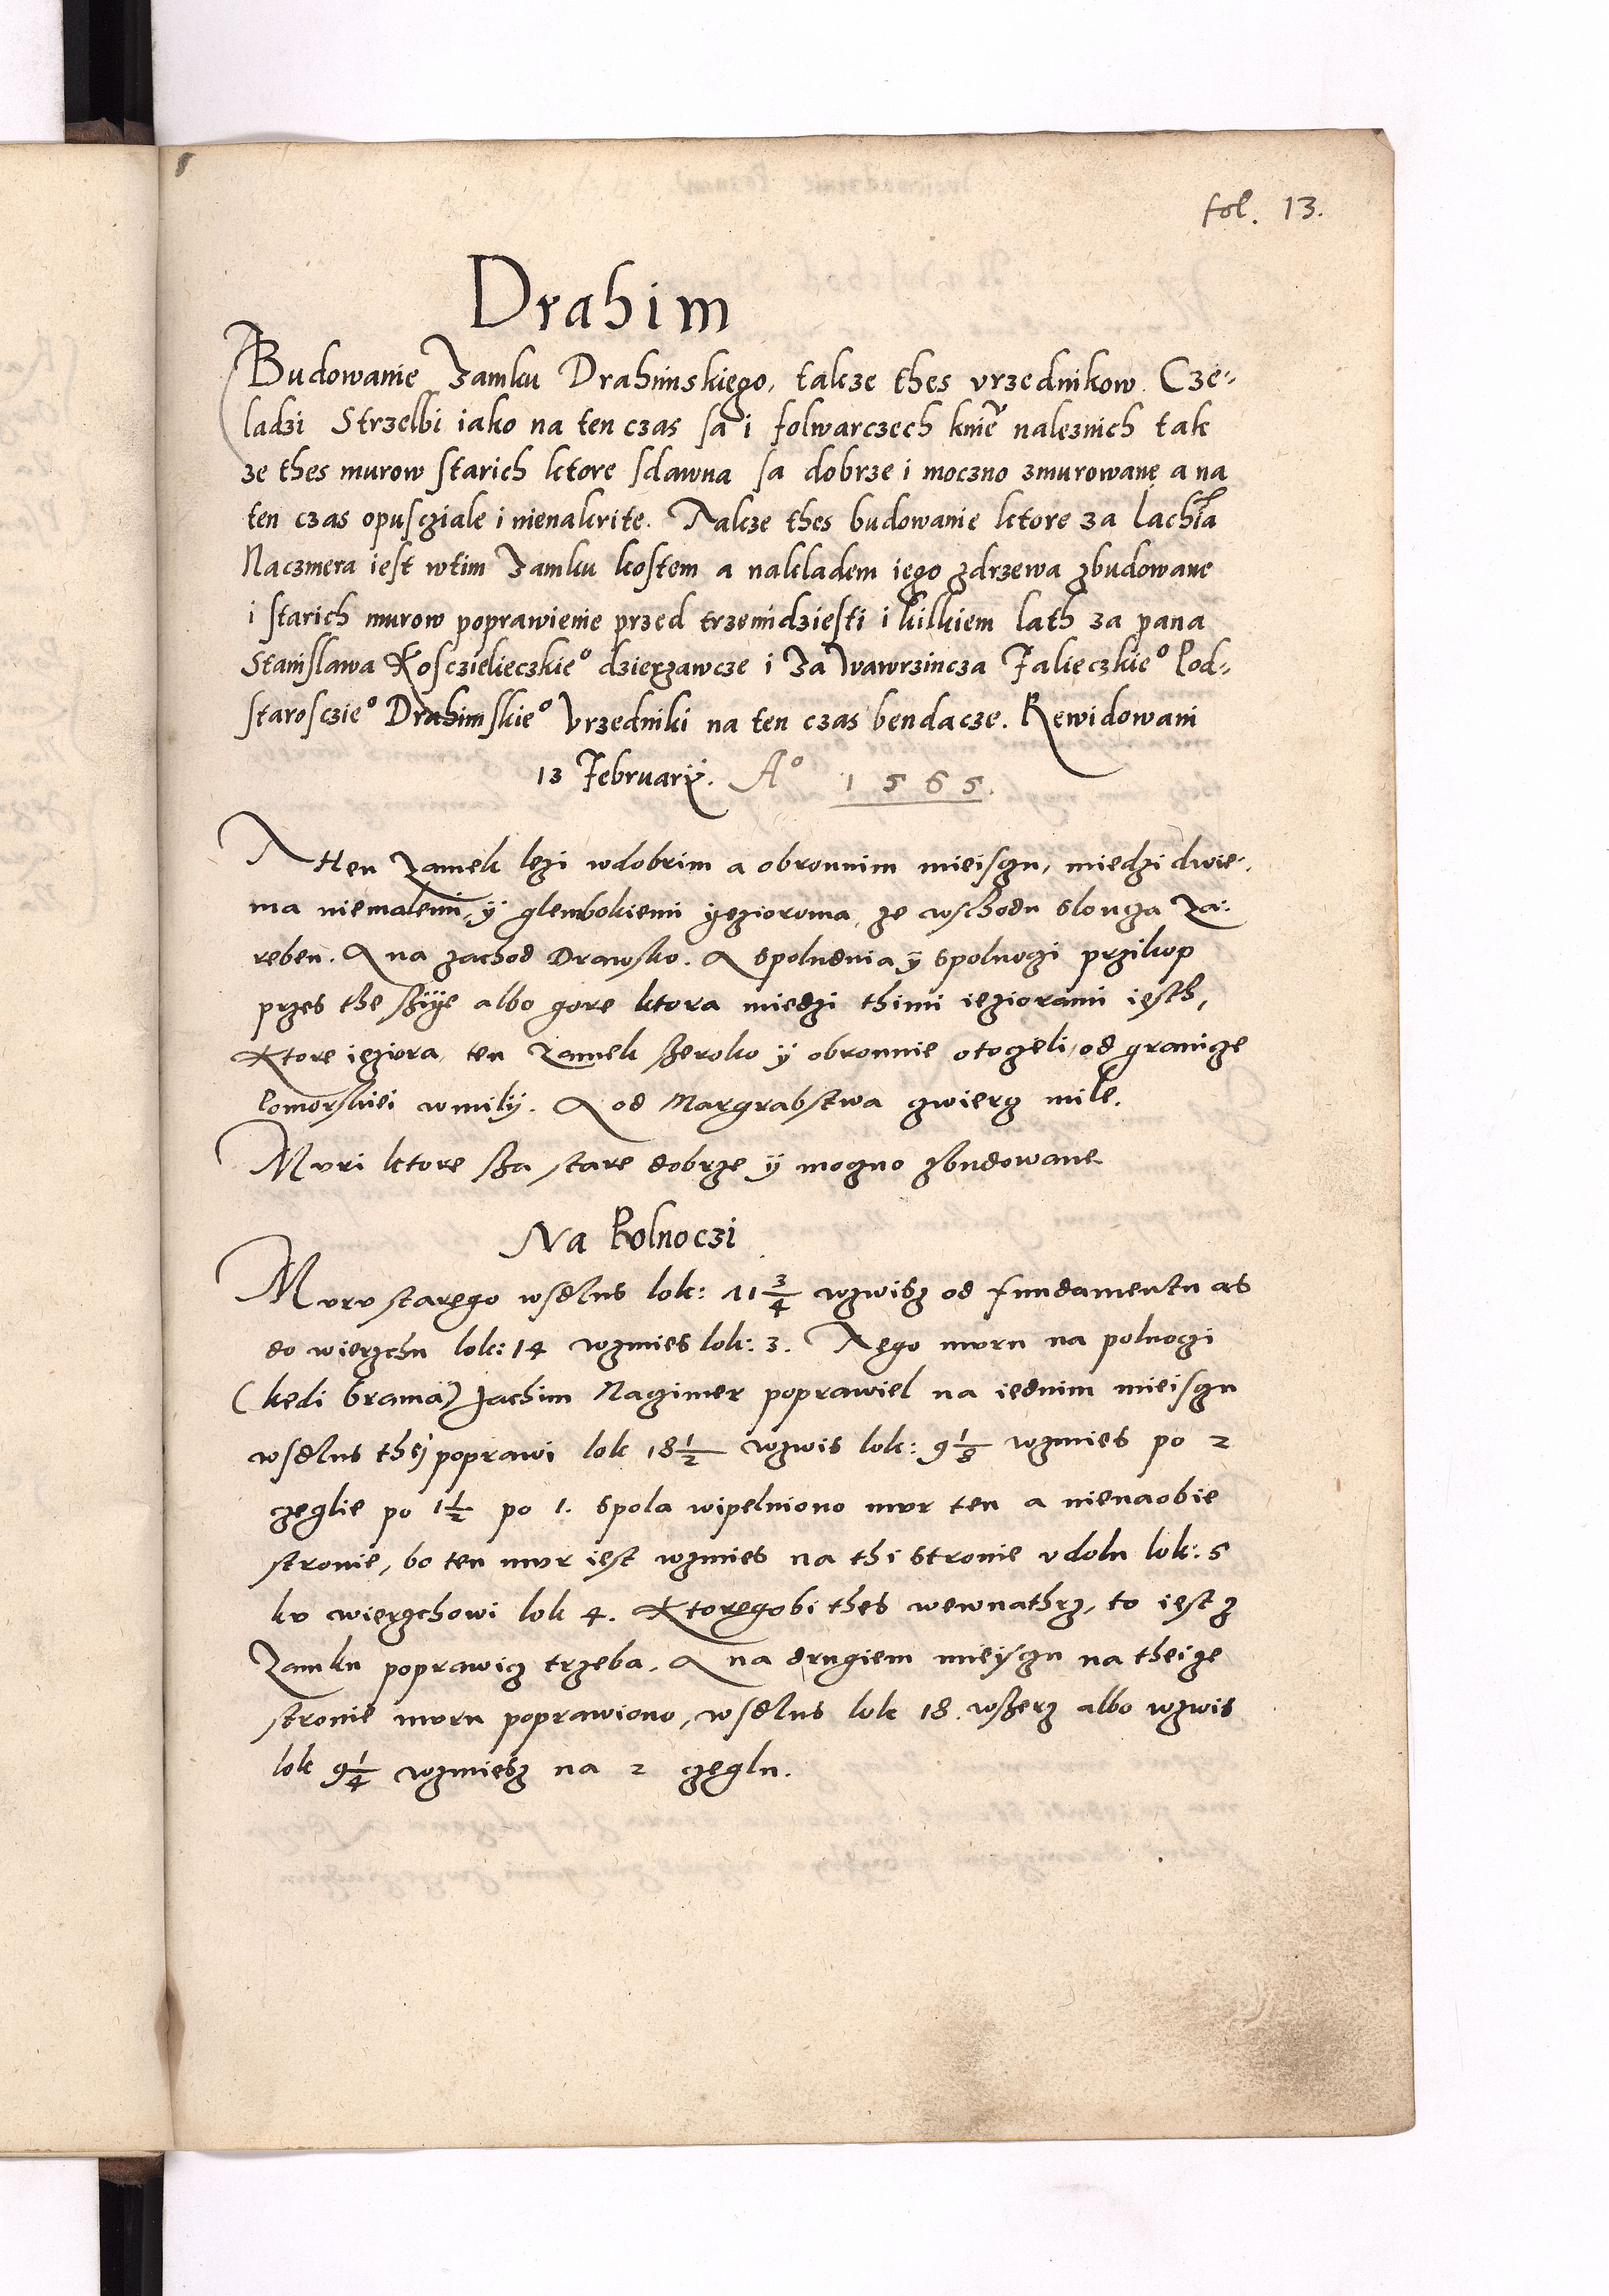 fol. 13.
Drahim
Budowanie Zamku Drahimskiego, takze thes vrzednikow. Cze-
ladzi Strzelbi iako na ten czas sa i folwarczech kniē naleznich tak
ze thes murow starich ktore sdawna sa dobrze i moczno zmurowane a na
ten czas opuscziale i nienakrite. Takze thes budowanie ktore za
Naczmera iest wtim Zamku kostem a nakladem iego zdrzewa zbudowane
i starich murow poprawienie przed trzemidziesti i kilkiem lath za pana
Stanislawa Kosczielieczkieº dzierzawcze i Za Wawrzincza Jalieczkieº Pod-
starosczieº Drahimskieº Vrzedniki na ten czas bendacze. Rewidowani
13 Februarÿ. Aº 1565.
A then Zamek lezi wdobrim a obronnim mieisczu, miedzi dwie-
ma niemalemi, ÿ glembokiemi ÿezioroma, ze wschodu sloncza Za-
reben. A na zachod Drawsko. A spoludnia ÿ spolnoczi przikop
przes the sziÿe albo gore ktora miedzi thimi ieziorami iesth,
Ktore ieziora, ten Zamek szeroko ÿ obronnie otoczeli, od granicze
Pomorskiei w milÿ. A od Margrabstwa czwiercz mile.
Mvri ktore sza stare dobrze ÿ moczno zbudowane
Na Polnoczi
Mvrv starego wsdlus lok: 11 3/4 wzwisz od fundamentu as
do wierzchu lok: 14 wzmies lok: 3. Tego mvru na polnoczi
(kedi brama) Jachim Naczimer poprawiel na iednim mieisczu
wsdlus theÿ poprawi lok 18 1/2 wzwis lok: 9 1/8 wzmies po 2
czeglie po 1 1/2 po 1. spola wipelniono mvr ten a nienaobie
stronie, bo ten mvr iest wzmies na thi stronie vdolu lok: 5
kv wierzchowi lok 4. Ktoregobi thes wewnathrz, to iest z
Zamku poprawicz trzeba. A na drugiem mieÿsczu na theize
stronie mvru poprawiono, wsdlus lok 18. wszerz albo wzwis
lok 9 1/4 wzmiesz na 2 czeglu.